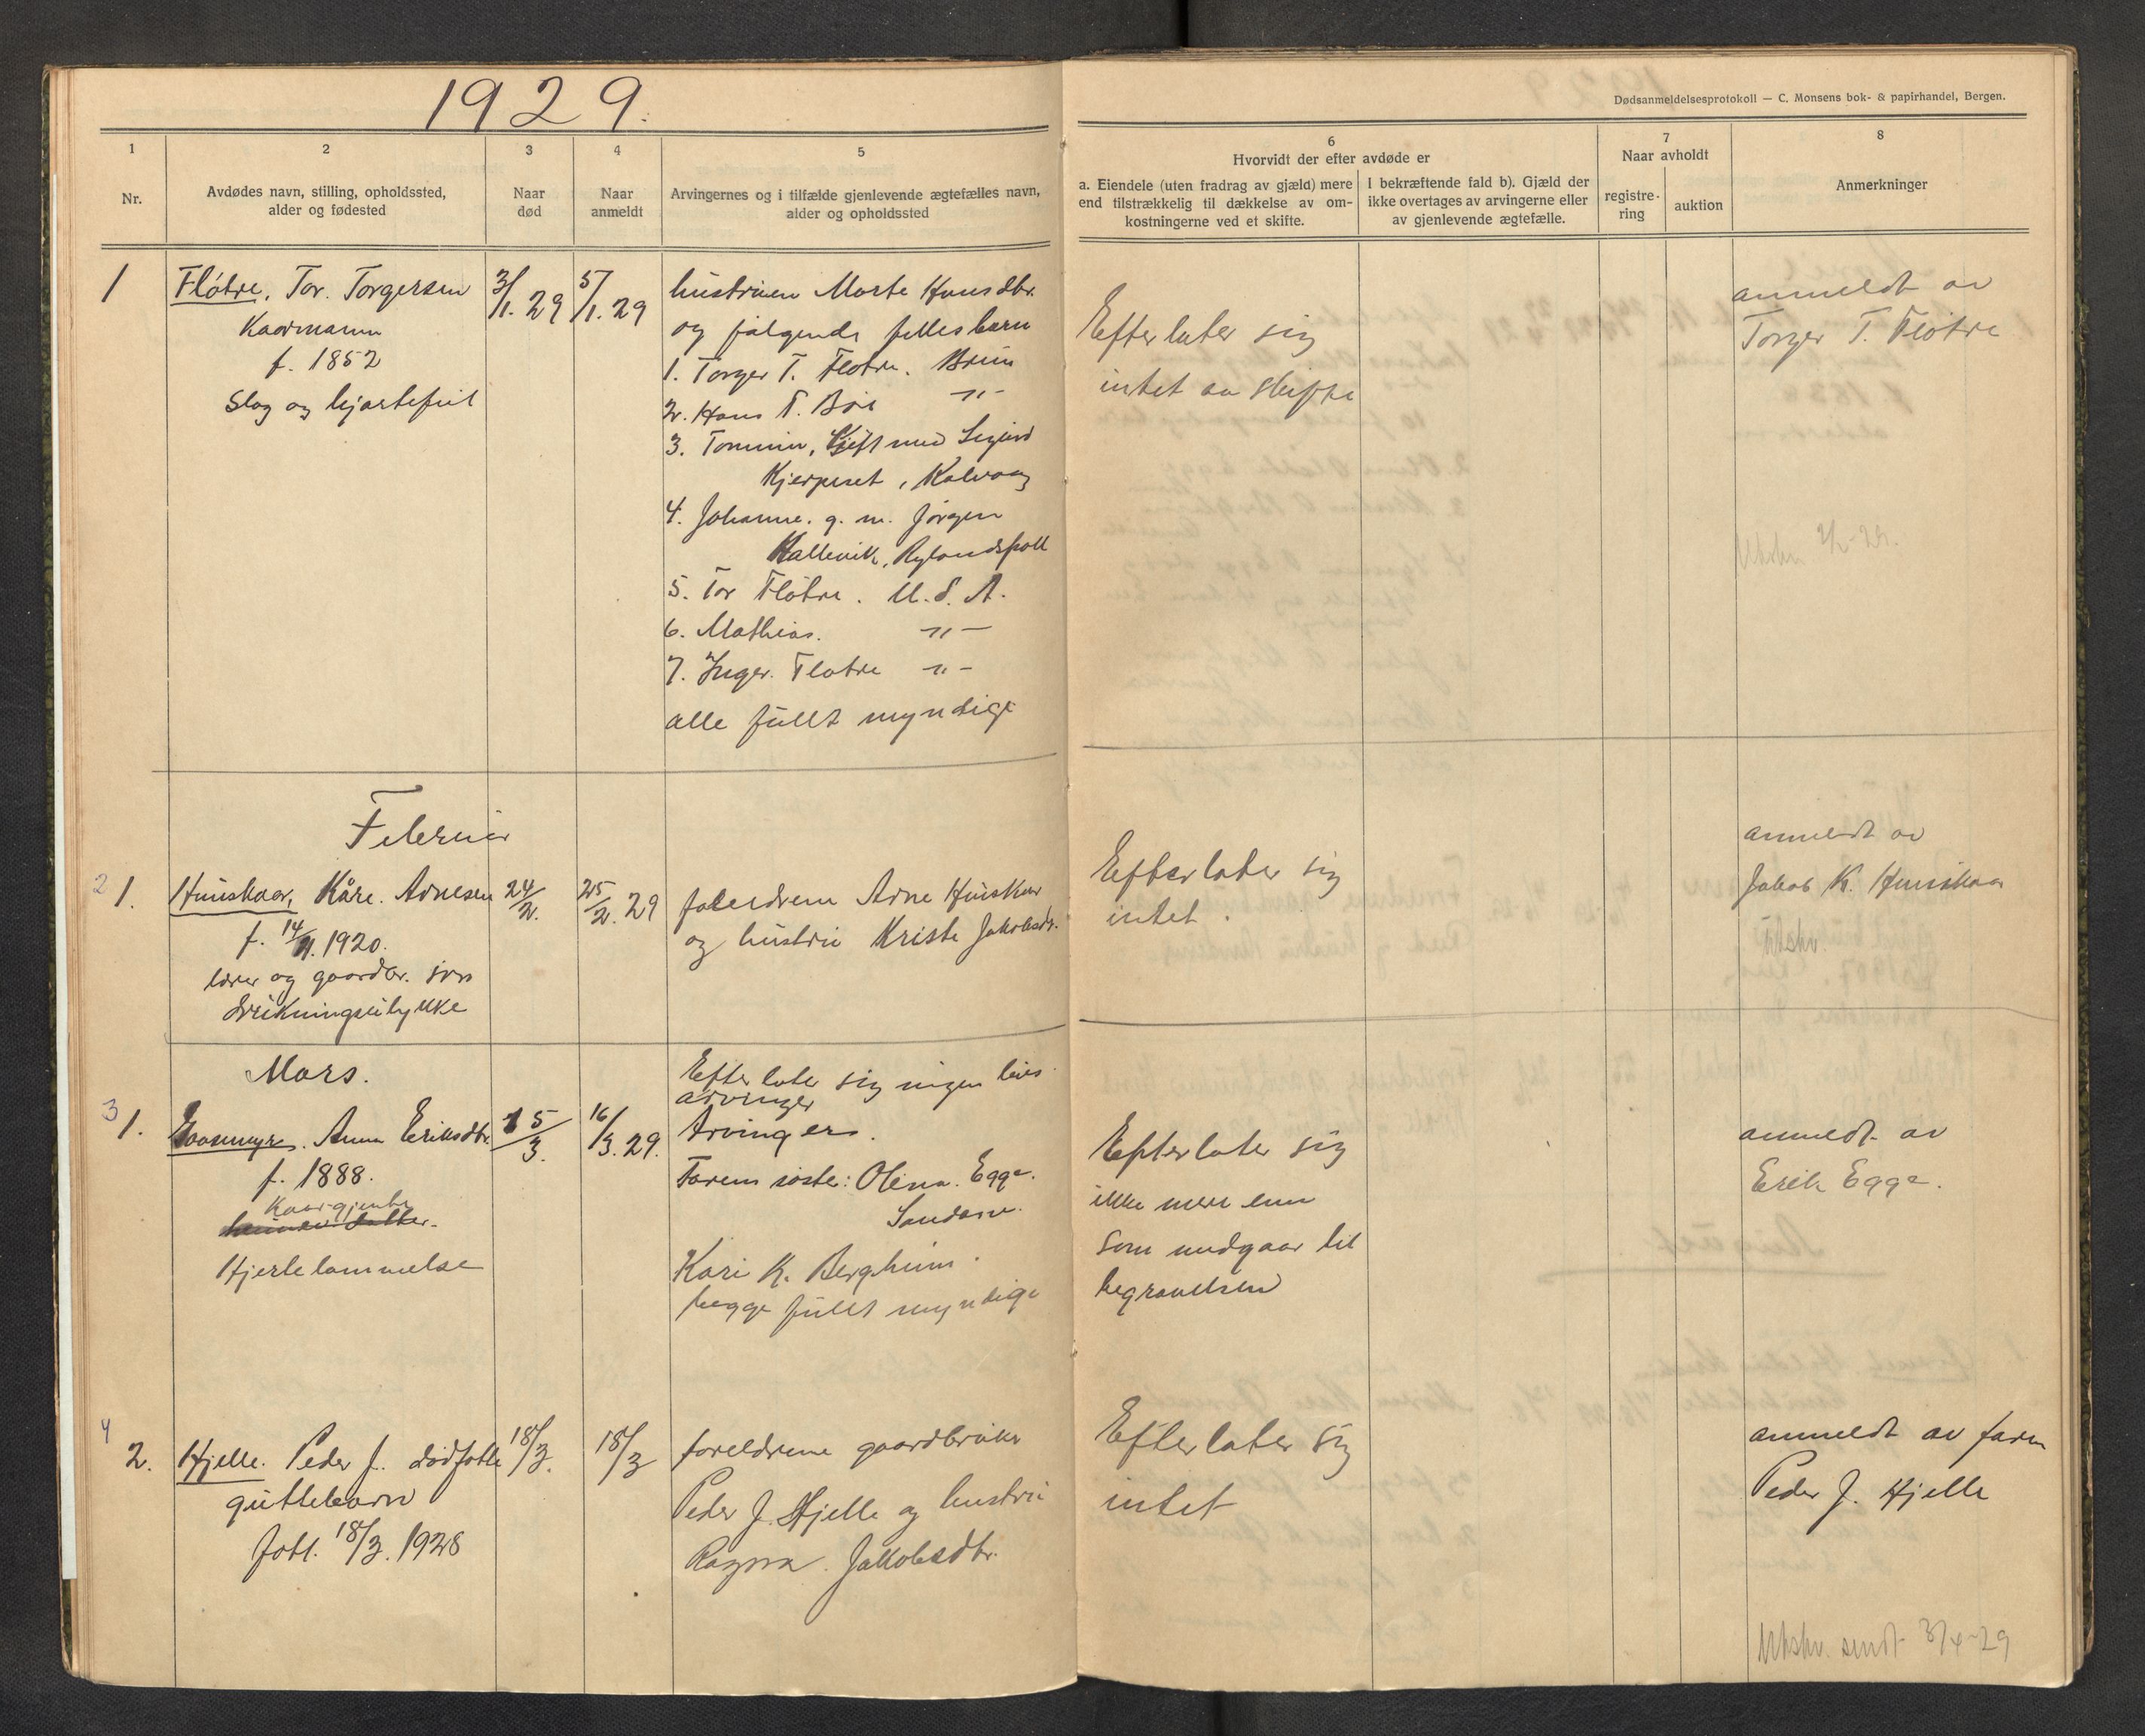 1929.
Dødsanmeldelsesprotokoll — C. Monsens bok- & papirhandel, Bergen.
1
Nr.
2
Avdødes navn, stilling, opholdssted,
alder og fødested
3
Naar
død
4
Naar
anmeldt
5
Arvingernes og i tilfælde gjenlevende ægtefælles navn,
alder og opholdssted
6
Hvorvidt der efter avdøde er
a. Eiendele (uten fradrag av gjæld) mere
end tilstrækkelig til dækkelse av om-
kostningerne ved et skifte.
I bekræftende fald b). Gjæld der
ikke overtages av arvingerne eller
av gjenlevende ægtefælle.
7
Naar avholdt
registre-
ring
auktion
8
Anmerkninger
1
Fløtre, Tor. Torgersen
Kaarmann
f. 1852
Slag og hjartefeil
3/1. 29
5/1. 29
hustruen Marte Hansdtr.
og følgende fellesbarn
1. Torger T. Fløtre. Breim
2. Hans T. Bøe -"-
3. Tomine, Gift med Sigurd
Kjerpeset, Kalvaag
4. Johanne. g. m. Jørgen
Hallevik, Rylandspoll
5. Tor Fløtre. U.S.A.
6. Mathias. -"-
7. Inger. Fløtre -"-
alle fullt myndige
Efterlater sig
intet aa skifte
anmeldt av
Torger T. Fløtre
Utskr.
Februar
2
1.
Hunskaar, Kåre. Arnesen
f. 14/11.1920.
lærer og gaardbr. søn
drukningsulykke
24/2.
25/2. 29
foreldrene Arne Hunskaar
og hustru Kriste Jakobsdr.
Efterlater sig
intet.
anmeldt av
Jakob K. Hunskaar
Utskr.
Mars.
3
1.
Anna Eriksdtr.
f. 1888.
Kaargjente
Hjertelammelse
15/3.
16/3. 29.
Efterlater sig ingen livs
arvinger
Arvinger.
Farens søster: Olina. Egge.
Sandane.
Kari K. Bergheim.
begge fullt myndige
Efterlater sig
ikke mere enn
som medgaar til
begravelsen
anmeldt av
Erik Egge.
4
2.
Hjelle. Peder J. dødfødt
guttebarn
født. 18/3. 1928
18/3.
18/3
foreldrene gaardbruker
Peder J. Hjelle og hustru
Ragna. Jakobsdtr.
Efterlater sig
intet
anmeldt av faren
Peder J. Hjelle
Utskr. sendt 3/4-29